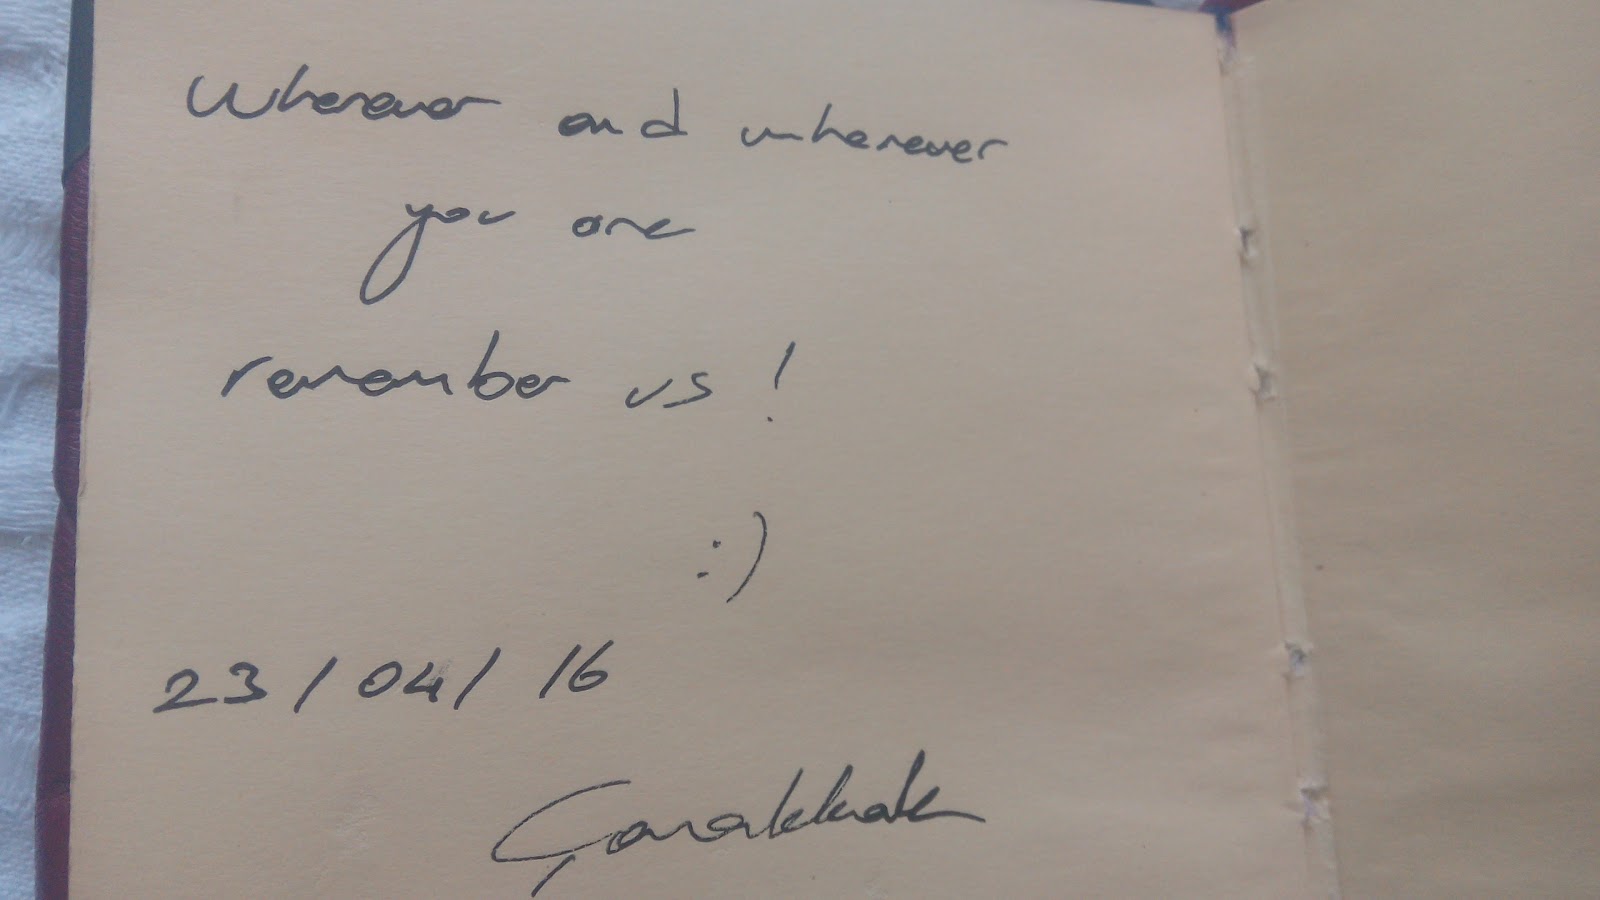 Wherever and whenever
you are
remember us!
:)
23/04/16
Çanakkale